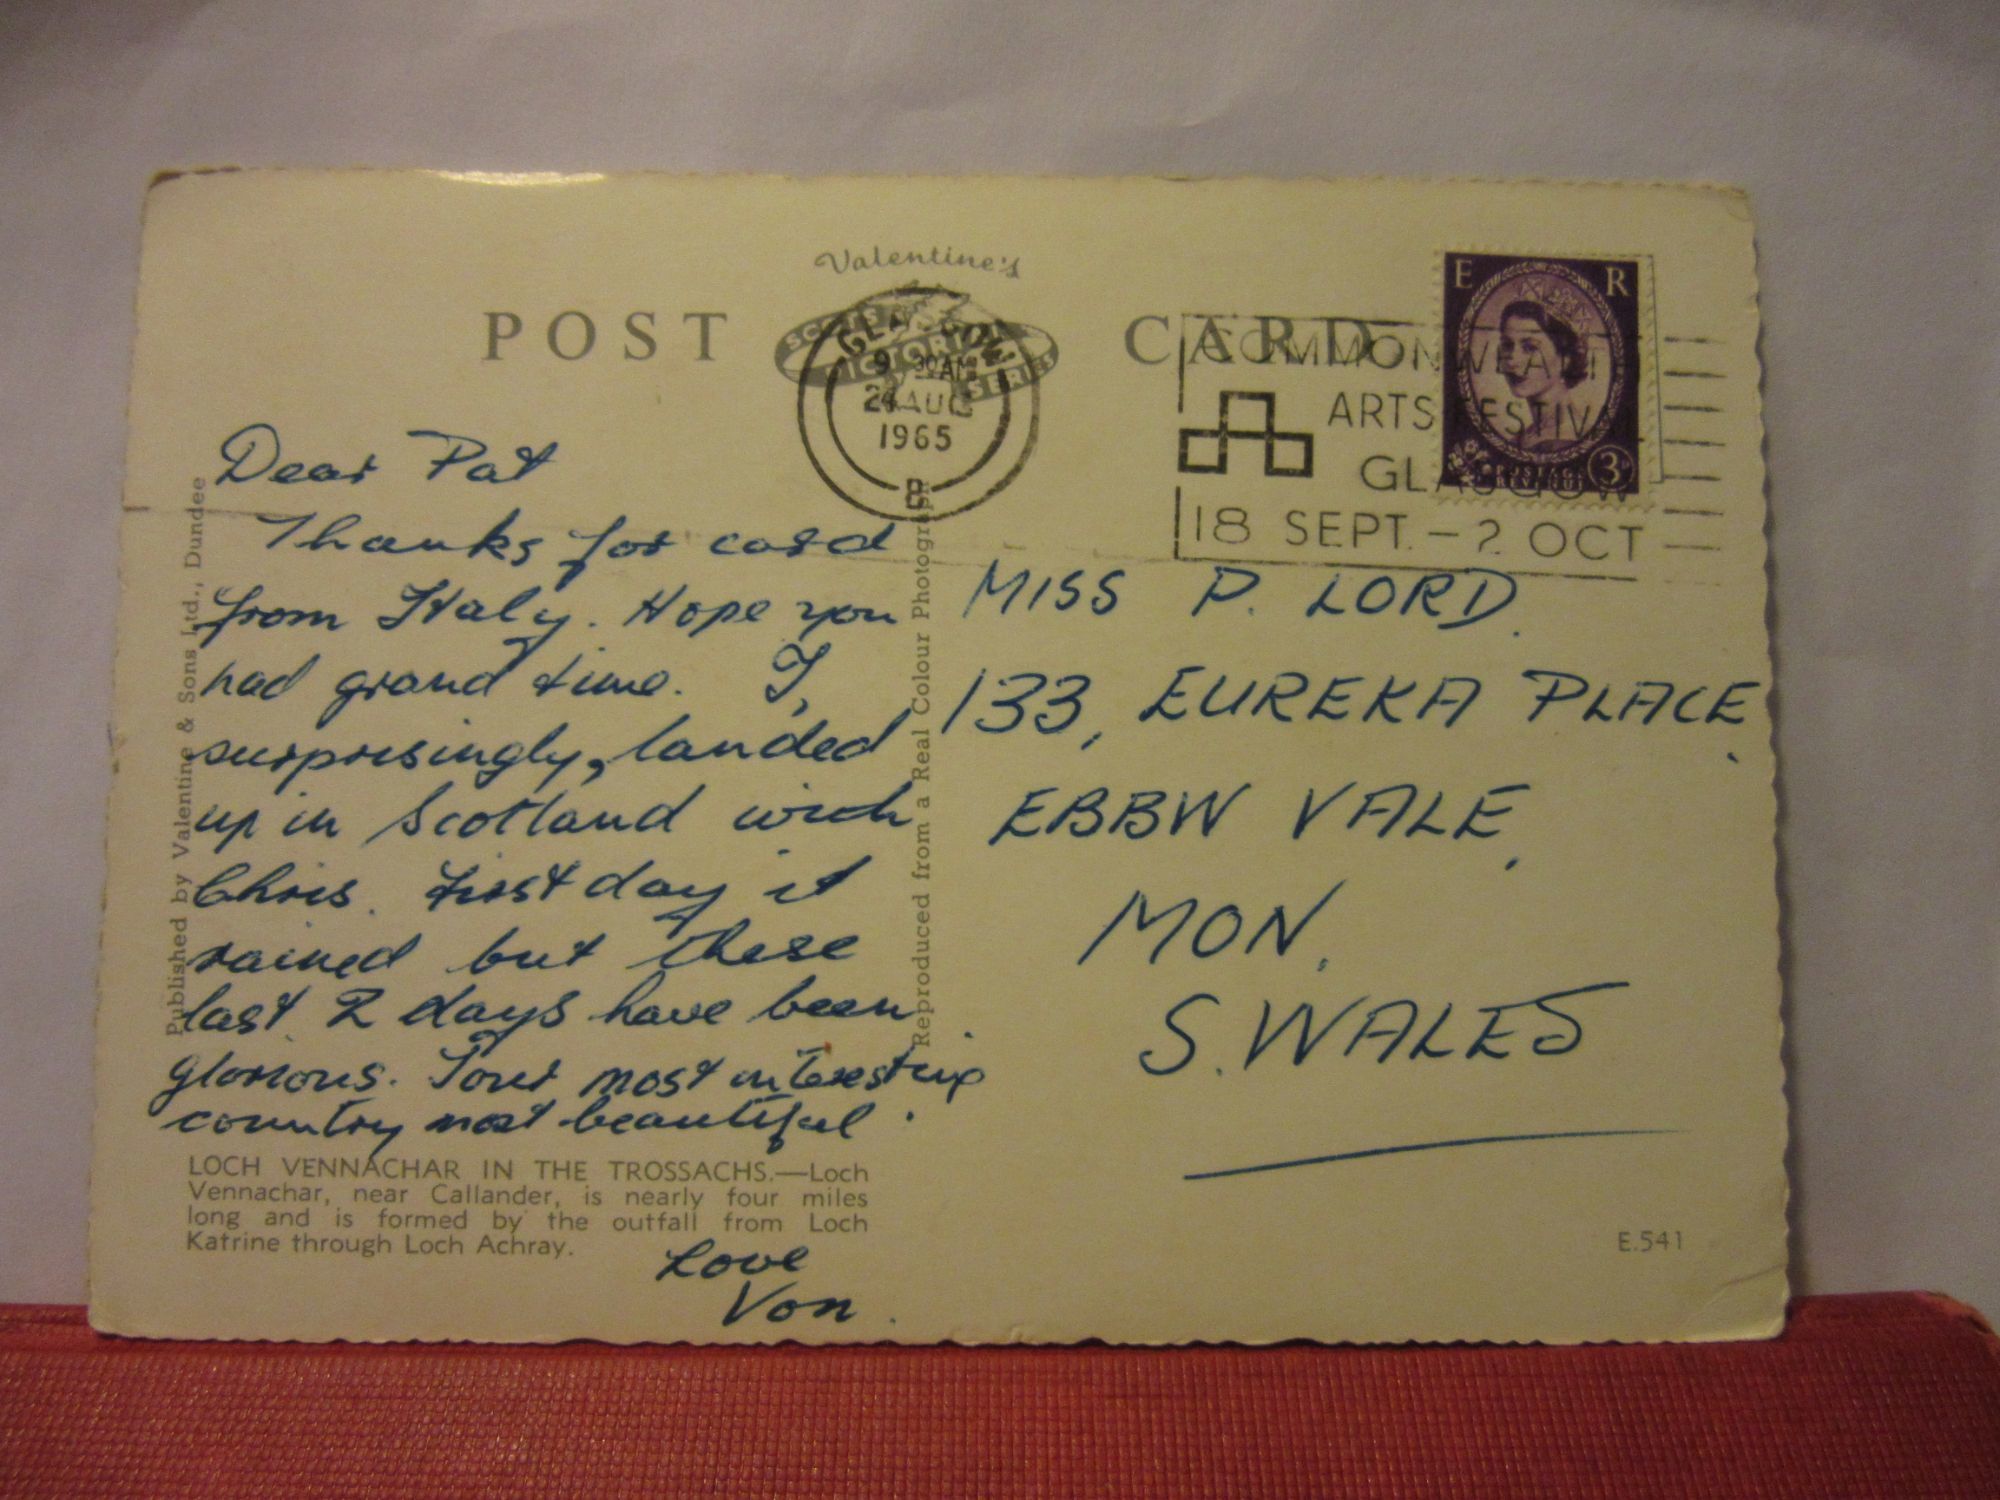 Valentine's
POST CARD
SCOTS
PICTORIAL
SERIES
GLASGOW
9 30 AM
24 AUG
1965
B
COMMONWEALTH
ARTS FESTIVAL
GLASGOW
18 SEPT. – 2 OCT
E R
POSTAGE
REVENUE
3D
Dear Pat
Thanks for card
from Italy. Hope you
had grand time. I,
surprisingly, landed
up in Scotland with
Chris. First day it
rained but these
last 2 days have been
glorious. Tour most interesting
country most beautiful.
Love
Von.
MISS P. LORD.
133, EUREKA PLACE,
EBBW VALE,
MON,
S. WALES
Published by Valentine & Sons Ltd., Dundee
Reproduced from a Real Colour Photograph
LOCH VENNACHAR IN THE TROSSACHS.—Loch
Vennachar, near Callander, is nearly four miles
long and is formed by the outfall from Loch
Katrine through Loch Achray.
E.541